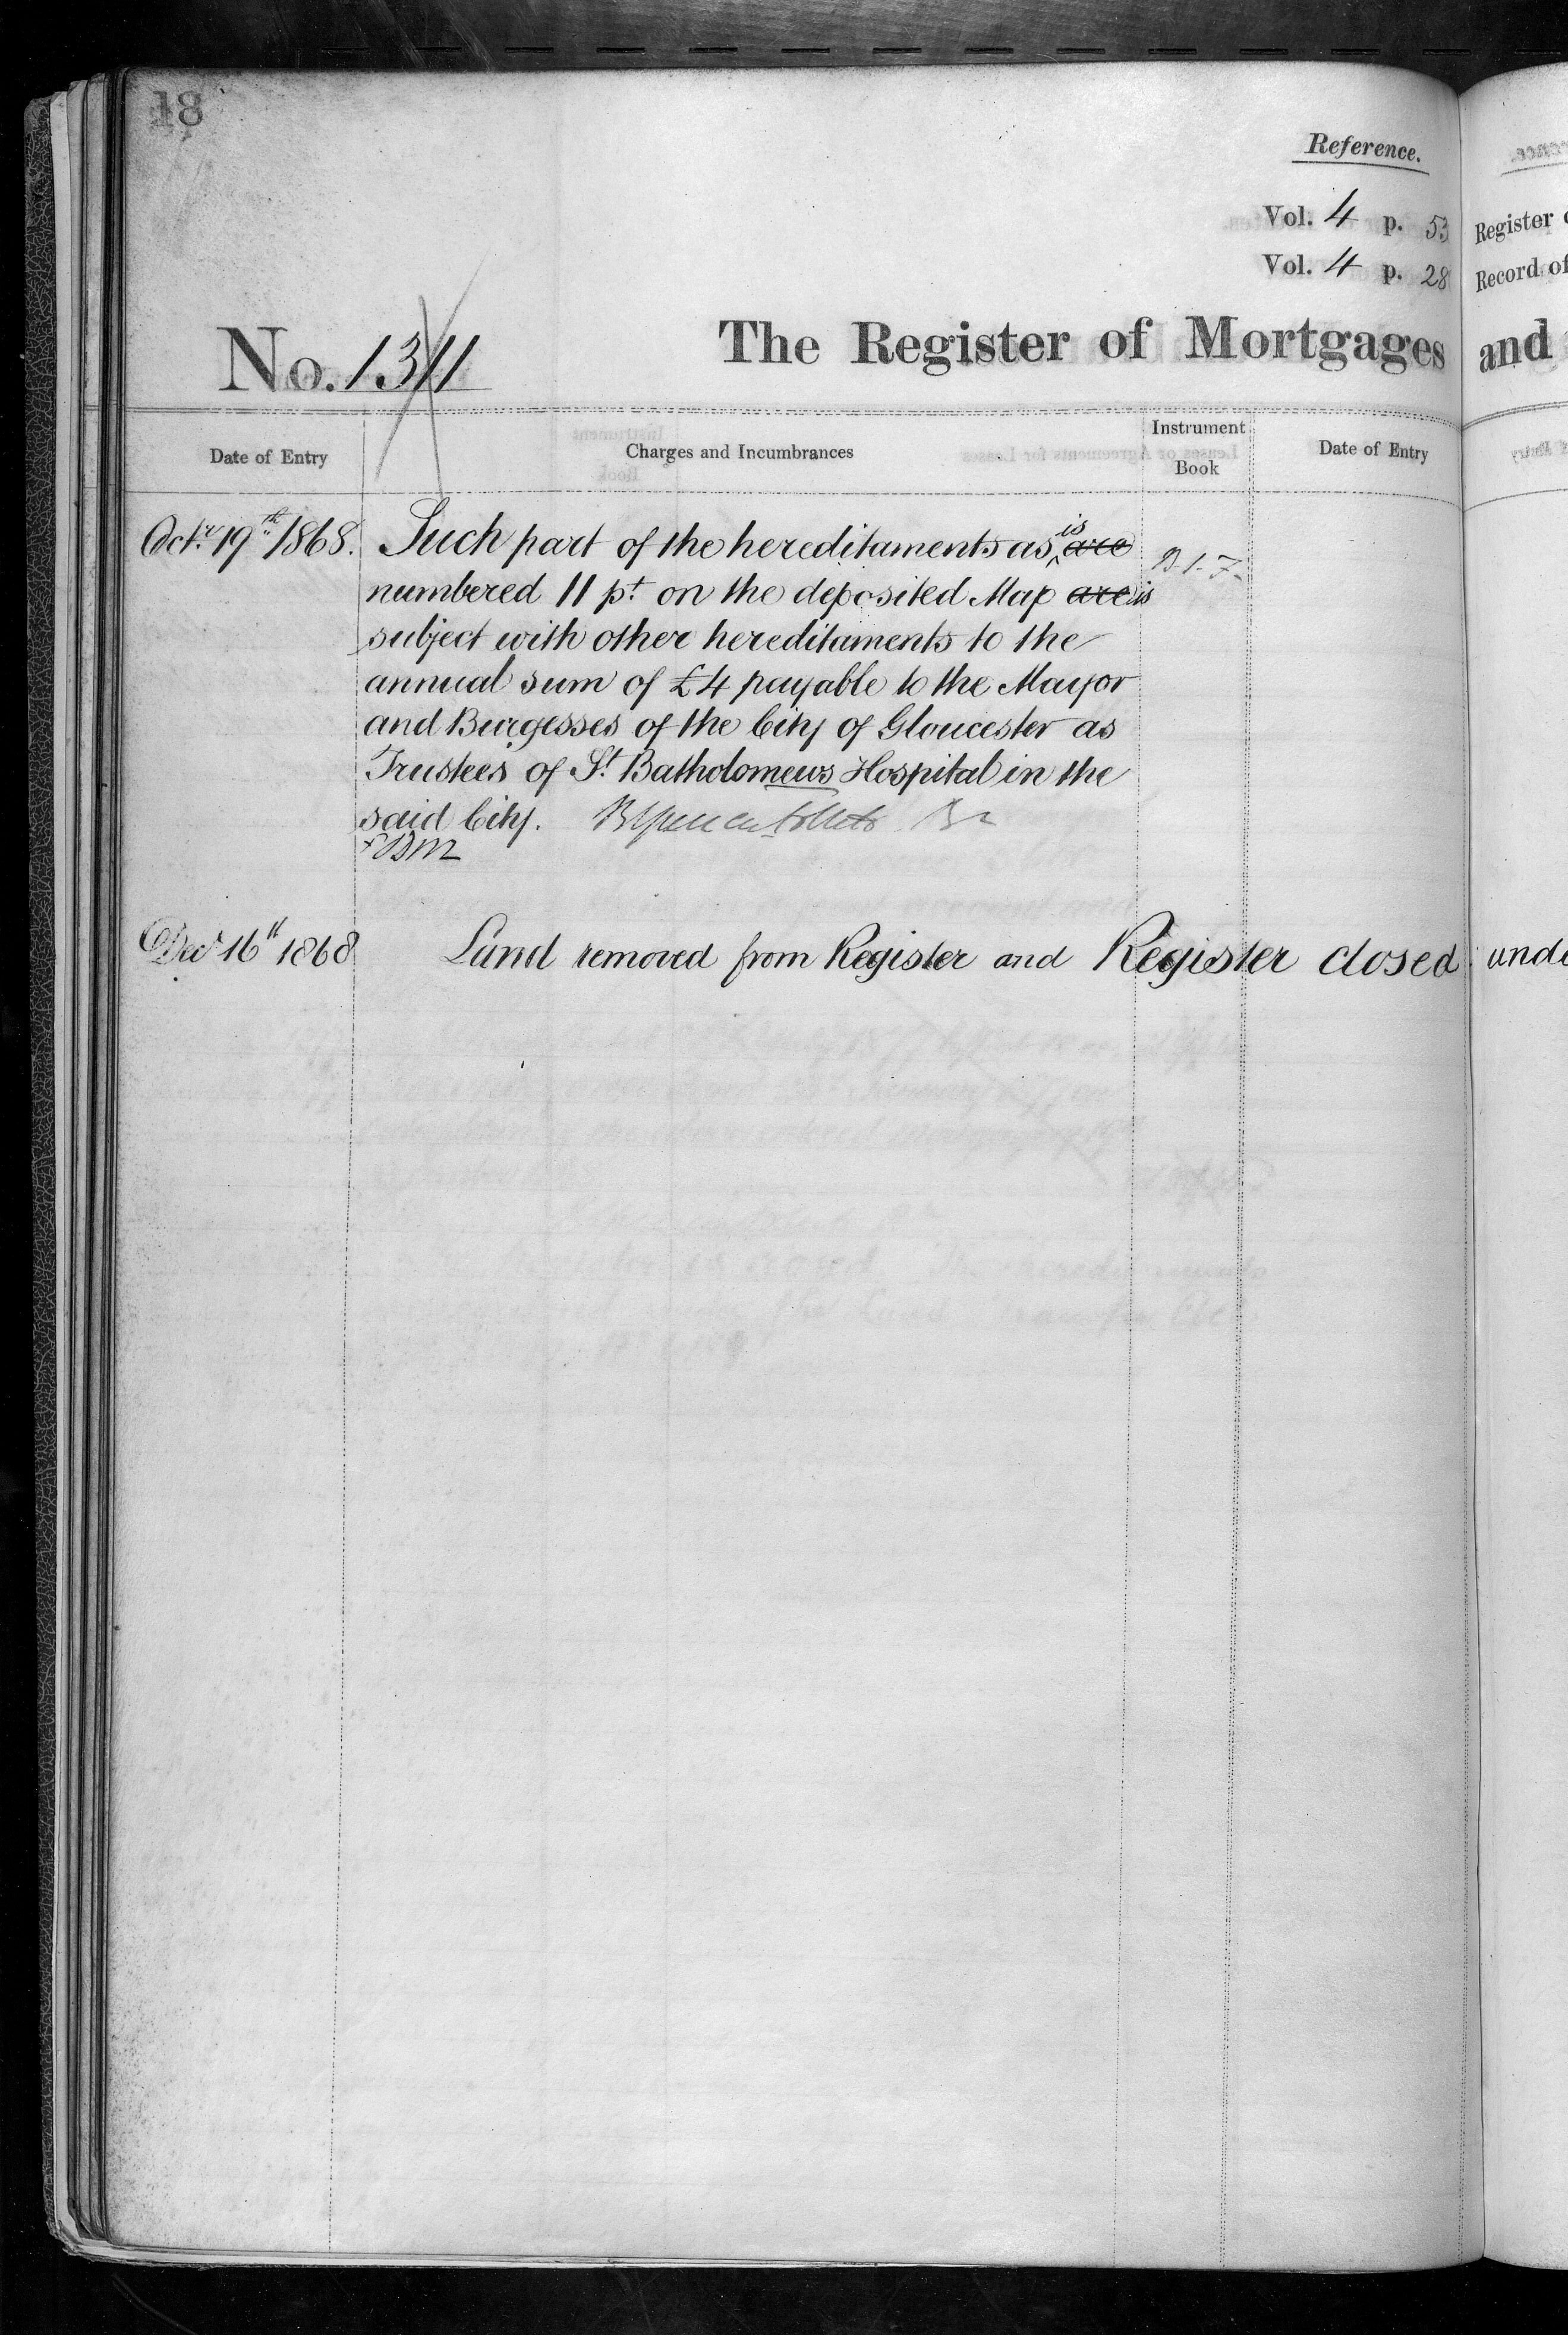 18
Reference.
Vol. 4 p. 53
Vol. 4 p. 28
Register
Record of
No. 1311
The Register of Mortgages and
Date of Entry
Charges and Incumbrances
Instrument Book
Date of Entry
Octr. 19th 1868. Such part of the hereditaments as is are
numbered 11 pt. on the deposited Map are is
subject with other hereditaments to the
annual sum of £4 payable to the Mayor
and Burgesses of the City of Gloucester as
Trustees of St. Batholomews Hospital in the
said City.
Decr 16th 1868 Land removed from Register and Register closed unde